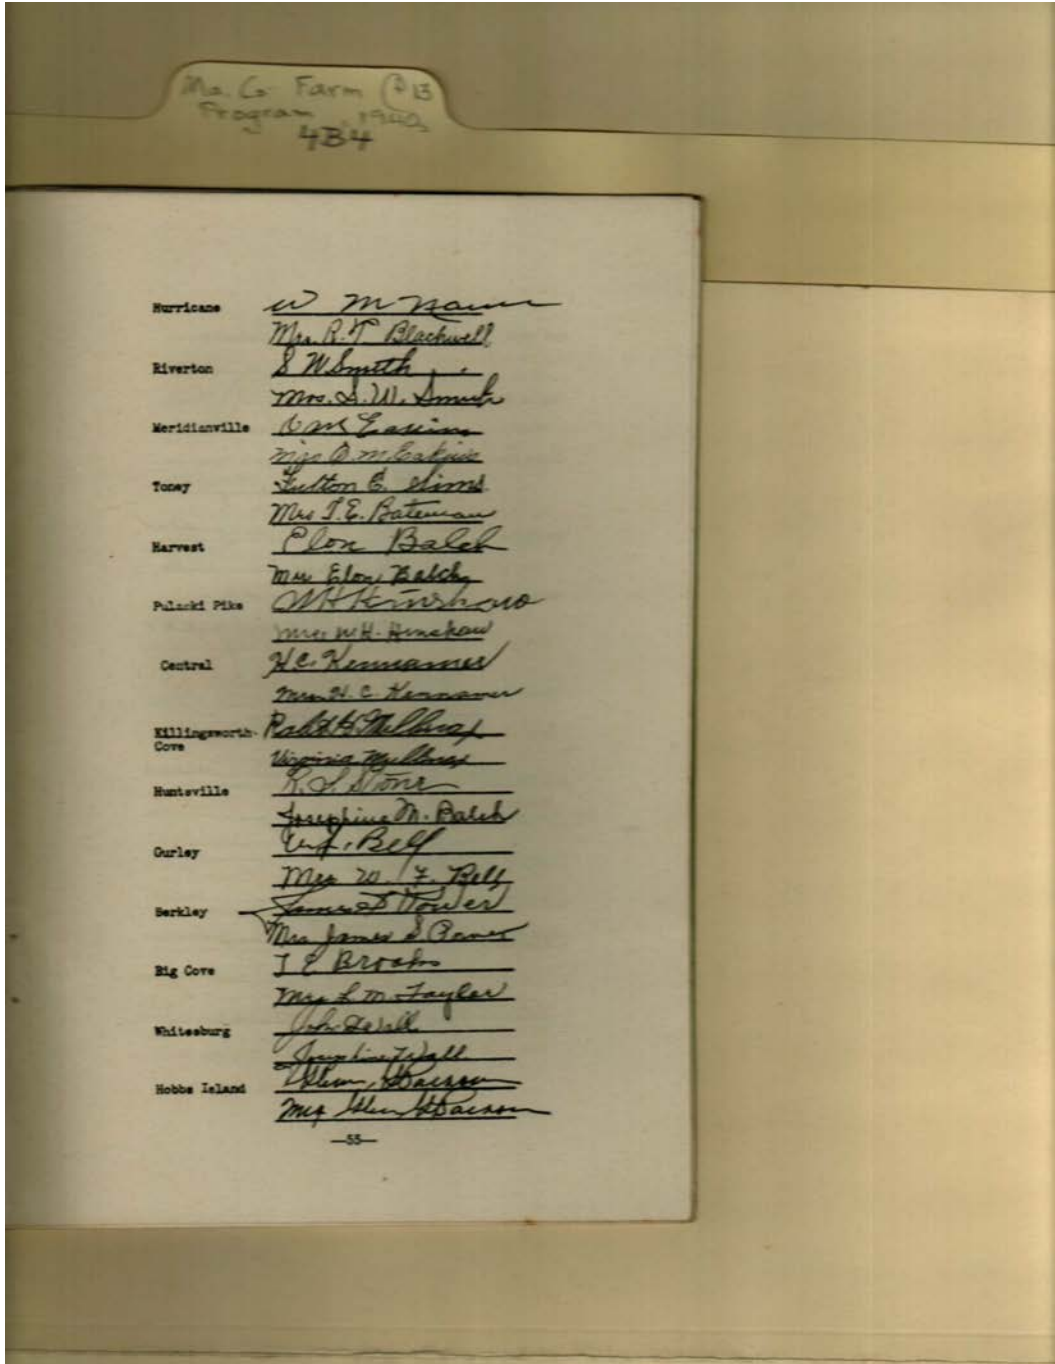 Ma. Co. Farm
Program, 1940
4B4
Hurricane W M
Mrs. R. T Blackwell
Riverton S W Smith
Mrs. S. W. Smith
Meridianville
Mrs O. M. Eakins
Toney Fulton E. Sims
Mrs T. E. Bateman
Harvest Elon Balch
Mrs Elon Balch
Pulaski Pike W H Hinshaw
Mrs W. H. Hinshaw
Central H. C. Kennamer
Mrs H. C. Kennamer
Killingsworth-
Cove
Virginia Mullinax
Huntsville R. L. Stone
Josephine M. Balch
Gurley W. F. Bell
Mrs W. F. Bell
Berkley James S
Mrs James S
Big Cove T E Brooks
Mrs L. M. Taylor
Whitesburg John Wall
Josephine Wall
Hobbs Island Glenn
Mrs Glenn
—55—